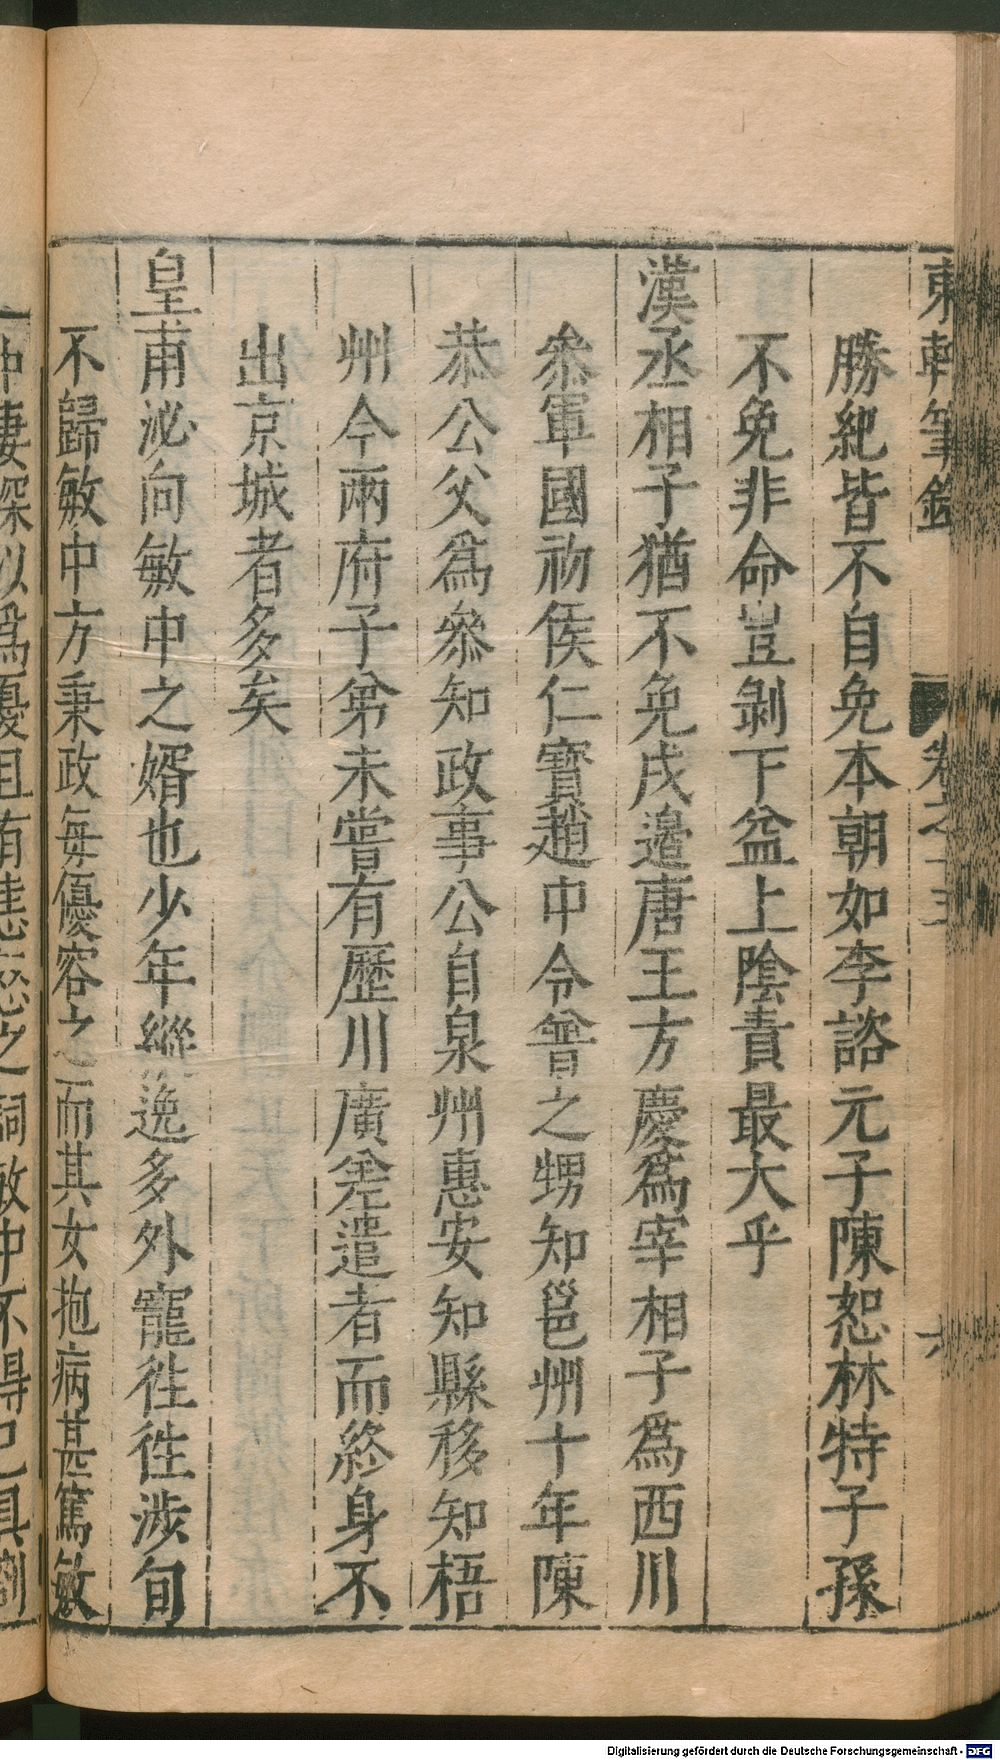 東軒筆錄
卷之十五
六
勝紀皆不自免本朝如李諮元子陳恕林特子孫
不免非命豈剝下益上陰責最大乎
漢丞相子猶不免戍邊唐王方慶為宰相子為西川
叅軍國初侯仁寶趙中令普之甥知邕州十年陳
恭公父為叅知政事公自泉州惠安知縣移知梧
州今兩府子弟未嘗有歷川廣差遣者而終身不
出京城者多矣
皇甫泌向敏中之婿也少年縱逸多外寵往往涉旬
不歸敏中方秉政每優容之而其女抱病甚篤敏
中妻深以為憂且有恚怒之詞敏中不得已具劄
Digitalisierung gefördert durch die Deutsche Forschungsgemeinschaft - DFG